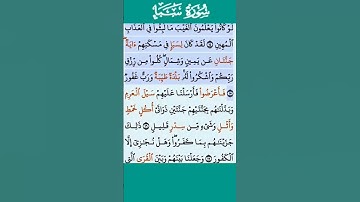 سُورَةُ سَبَإٍ
لَّوْ كَانُوا۟ يَعْلَمُونَ ٱلْغَيْبَ مَا لَبِثُوا۟ فِى ٱلْعَذَابِ
ٱلْمُهِينِ ۝ لَقَدْ كَانَ لِسَبَإٍ فِى مَسْكَنِهِمْ ءَايَةٌ
جَنَّتَانِ عَن يَمِينٍ وَشِمَالٍ كُلُوا۟ مِن رِّزْقِ
رَبِّكُمْ وَٱشْكُرُوا۟ لَهُۥ بَلْدَةٌ طَيِّبَةٌ وَرَبٌّ غَفُورٌ
۝ فَأَعْرَضُوا۟ فَأَرْسَلْنَا عَلَيْهِمْ سَيْلَ ٱلْعَرِمِ
وَبَدَّلْنَٰهُم بِجَنَّتَيْهِمْ جَنَّتَيْنِ ذَوَاتَىْ أُكُلٍ خَمْطٍ
وَأَثْلٍ وَشَىْءٍ مِّن سِدْرٍ قَلِيلٍ ۝ ذَٰلِكَ
جَزَيْنَٰهُم بِمَا كَفَرُوا۟ وَهَلْ نُجَٰزِىٓ إِلَّا
ٱلْكَفُورَ ۝ وَجَعَلْنَا بَيْنَهُمْ وَبَيْنَ ٱلْقُرَى ٱلَّتِى